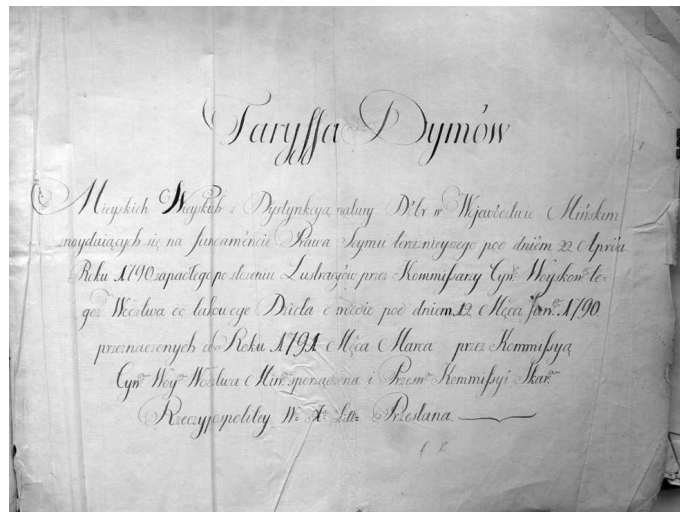 Taryffa Dymów
Mieyskich Wieyskich z Dystynkcyą natury Dóbr w Wojewodztwie Mińskim
znayduiących się na fundamencie Prawa Seymu teraznieyszego pod dniem 22 Aprila
Roku 1790 zapadłego po złożeniu Lustracyów przez Kommissarzy Cyw: Woyskow: te-
goż Wodztwa do takowego Dzieła pod dniem 12 Męca 1790
przeznaczonych do Roku 1791 Męca Marca przez Kommissyą
Cyw: Woy: Wodztwa Min: sporządzona i Przesw: Kommissyi Skar:
Rzeczyjpospolitey W: X: Litt: Przesłana.